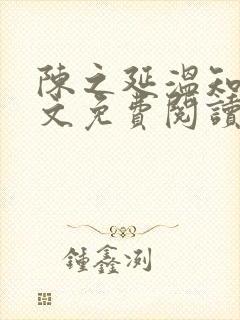 陳之延溫知
文免費閱讀
鍾鑫浏